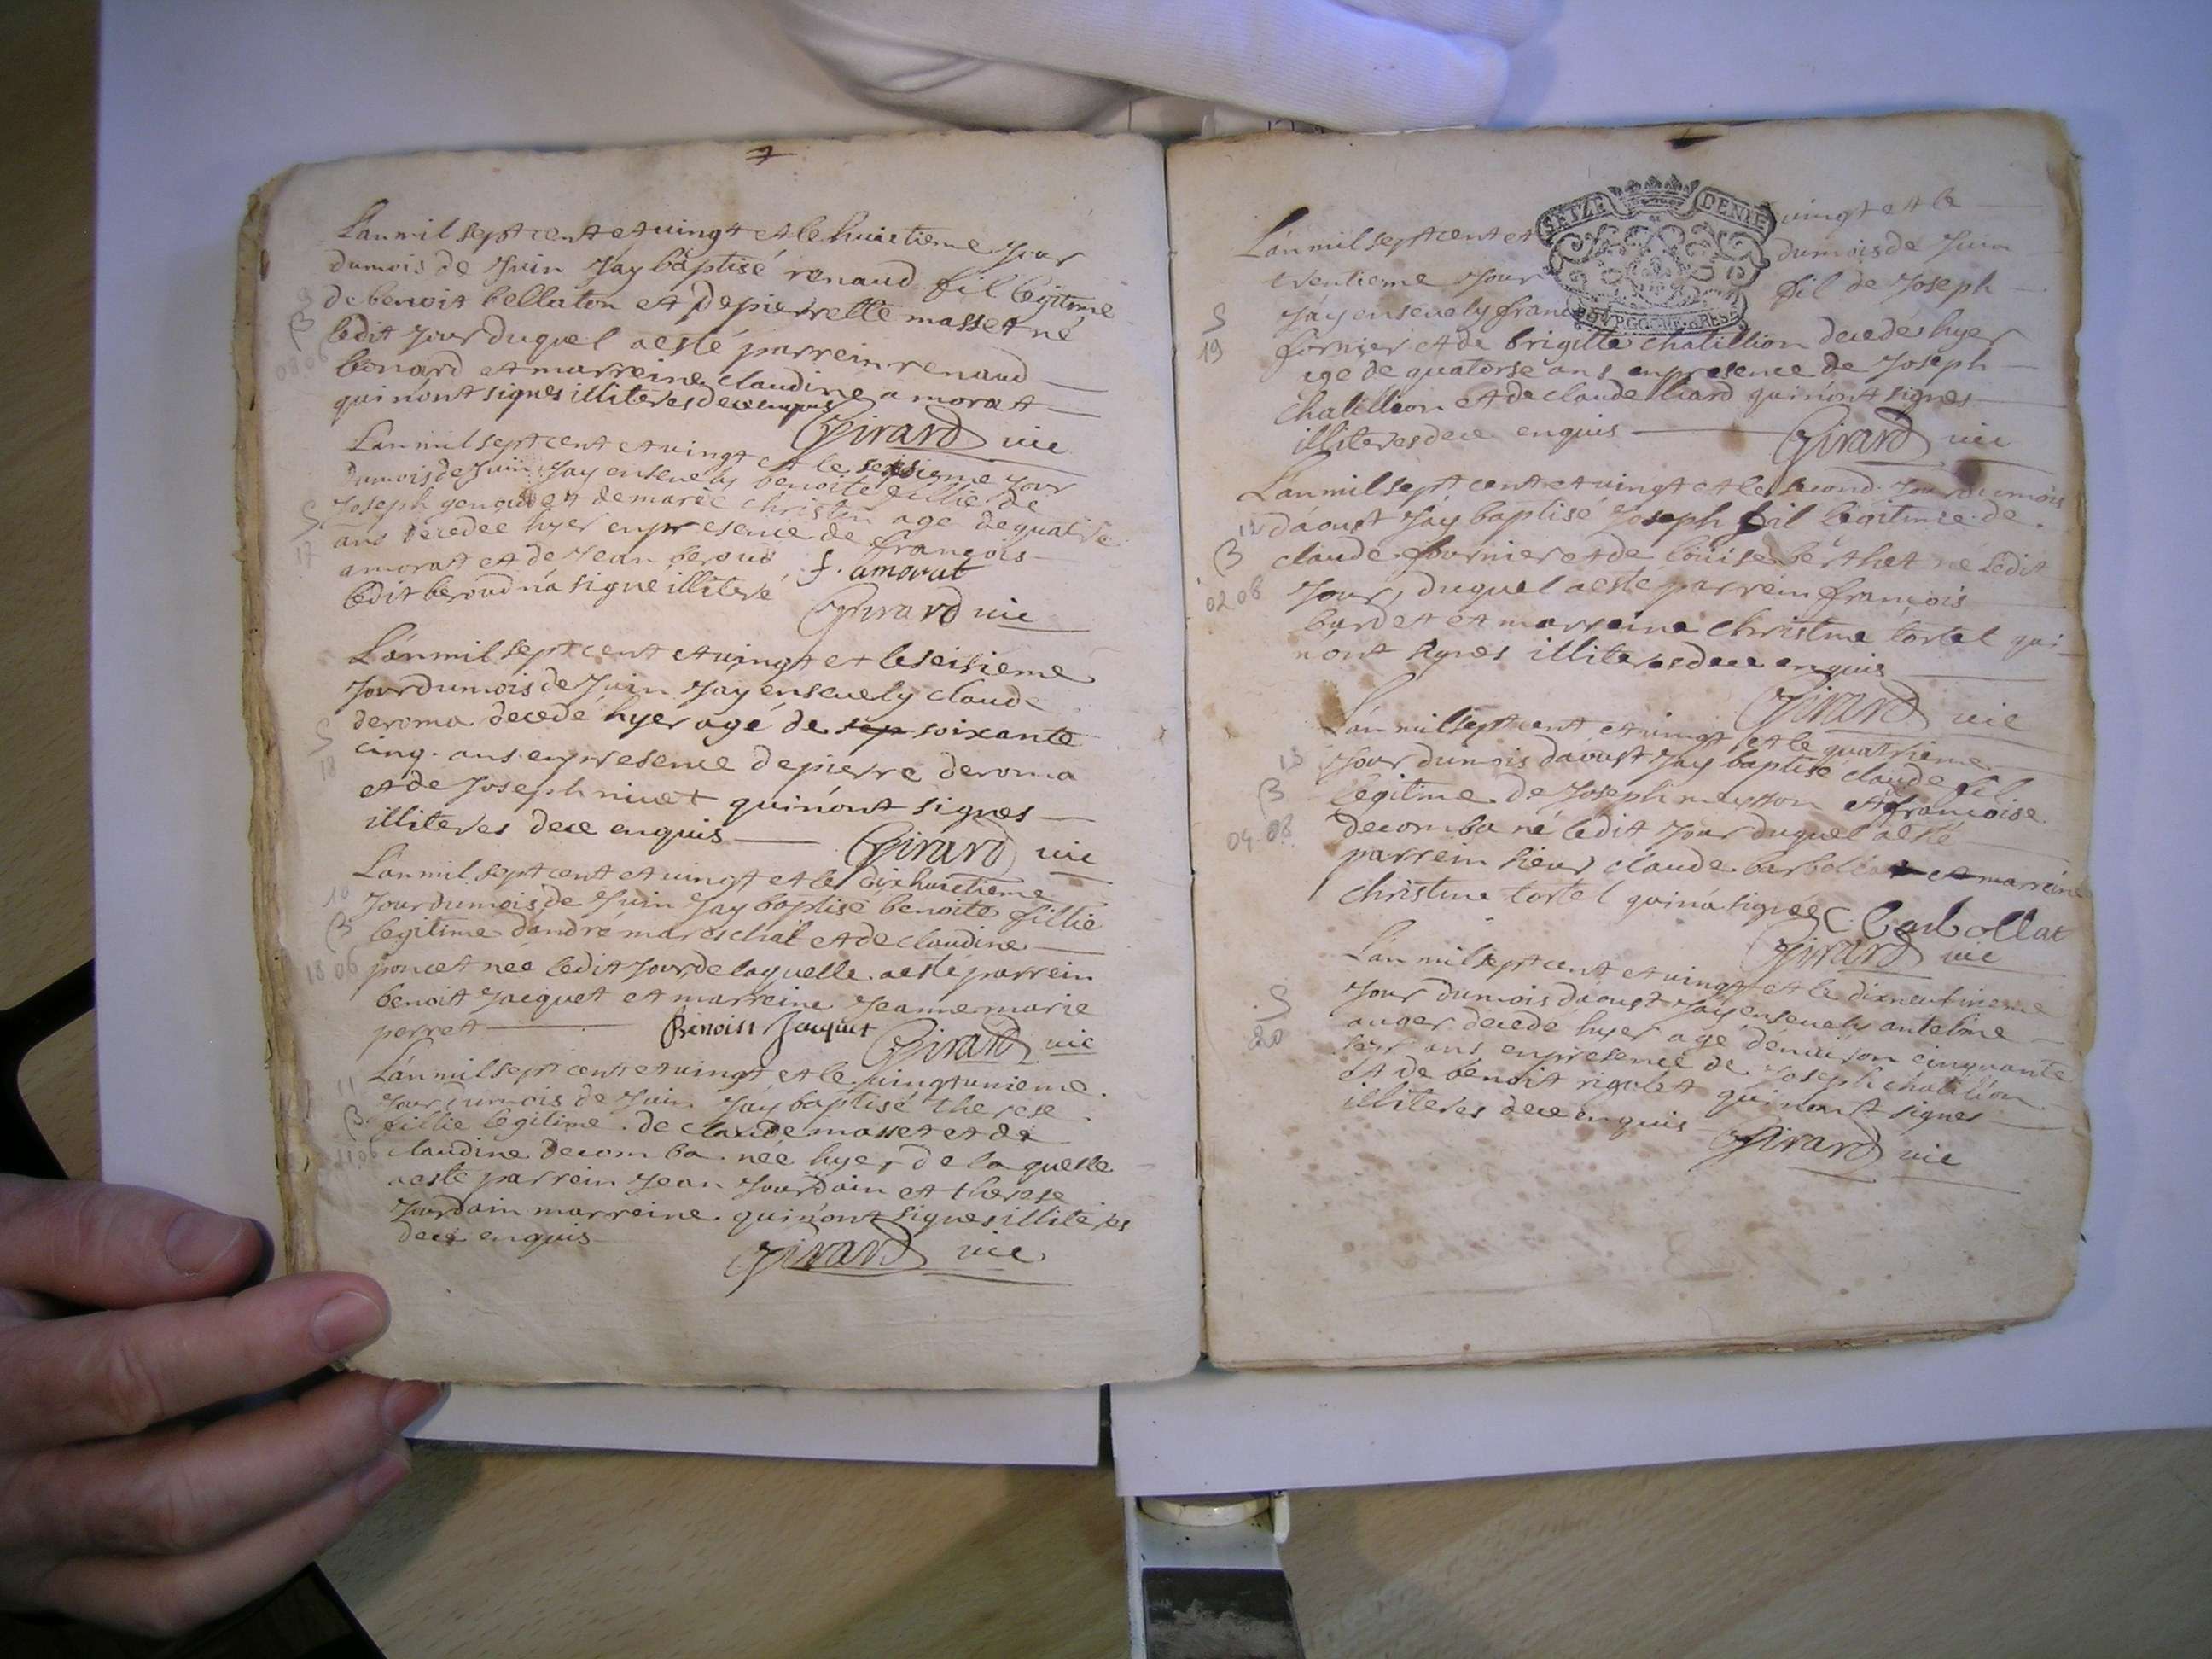 7
L'an mil sept cent et vingt et le huictieme jour
du mois de Juin J'ay baptisé renaud fil legitime
de benoit bellaton et de pierrette masset né
B
ledit jour duquel a esté parrein renaud
08.06
benard et marreine claudine amorat
qui n'ont signes illiteres de ce enquis
Girard vic
L'an mil sept cent et vingt et le seisieme jour
du mois de Juin J'ay ensevely benoite fillie de
Joseph et de marie christin age de quatre
S
17
ans decedee hyer en presence de francois
amorat et de Jean beroud f. amorat
ledit beroud n'a signe illiteré
Girard vic
L'an mil sept cent et vingt et le seisieme
Jour du mois de Juin J'ay ensevely claude
deroma decedé hyer agé de sep soixante
S
18
cinq ans en presence de pierre deroma
et de Joseph nivet qui n'ont signes
illiteres de ce enquis
Girard vic
L'an mil sept cent et vingt et le dixhuictieme
10
Jour du mois de Juin J'ay baptisé benoite fillie
B
legitime d'andré mareschal et de claudine
18 06
poncet née ledit jour, de laquelle a esté parrein
benoit Jacquet et marreine Jeanne marie
perret
Benoist Jaquet
Girard vic
L'an mil sept cent et vingt et le vingtunieme
11
Jour du mois de Juin J'ay baptisé therese
B
fillie legitime de claude masset et de
21.06
claudine decomba née hyer de laquelle
a esté parrein Jean Jourdain et therese
Jourdain marreine qui n'ont signes illiteres
de ce enquis
Girard vic
SEIZE DENIE
BOURGOGNE BRESSE
L'an mil sept cent et vingt et le
trentieme jour du mois de Juin
S
J'ay ensevely francois fil de Joseph
19
fornier et de brigitte chatillion decedé hyer
age de quatorse ans en presence de Joseph
chatillion et de claude liard qui n'ont signes
illiteres de ce enquis
Girard vic
L'an mil sept cent et vingt et le second jour du mois
12
d'aoust J'ay baptisé Joseph fil legitime de
B
claude fournier et de louise berthet né ledit
02 08
Jour, duquel a esté parrein francois
burdet et marreine christine tortel qui
n'ont signes illiteres de ce enquis
Girard vic
L'an mil sept cent et vingt et le quatrieme
13
Jour du mois d'aoust J'ay baptisé claude fil
B
legitime de Joseph meysson et francoise
04.08
decomba né ledit jour duquel a esté
parrein sieur claude barbollat et marreine
christine tortel qui n'a signee C Barbollat
Girard vic
L'an mil sept cent et vingt et le dixneufvieme
S
Jour du mois d'aoust J'ay ensevely antelme
20
auger decedé hyer age d'environ cinquante
sept ans en presence de Joseph chatillion
et de benoit rigolet qui n'ont signes
illiteres de ce enquis
Girard vic